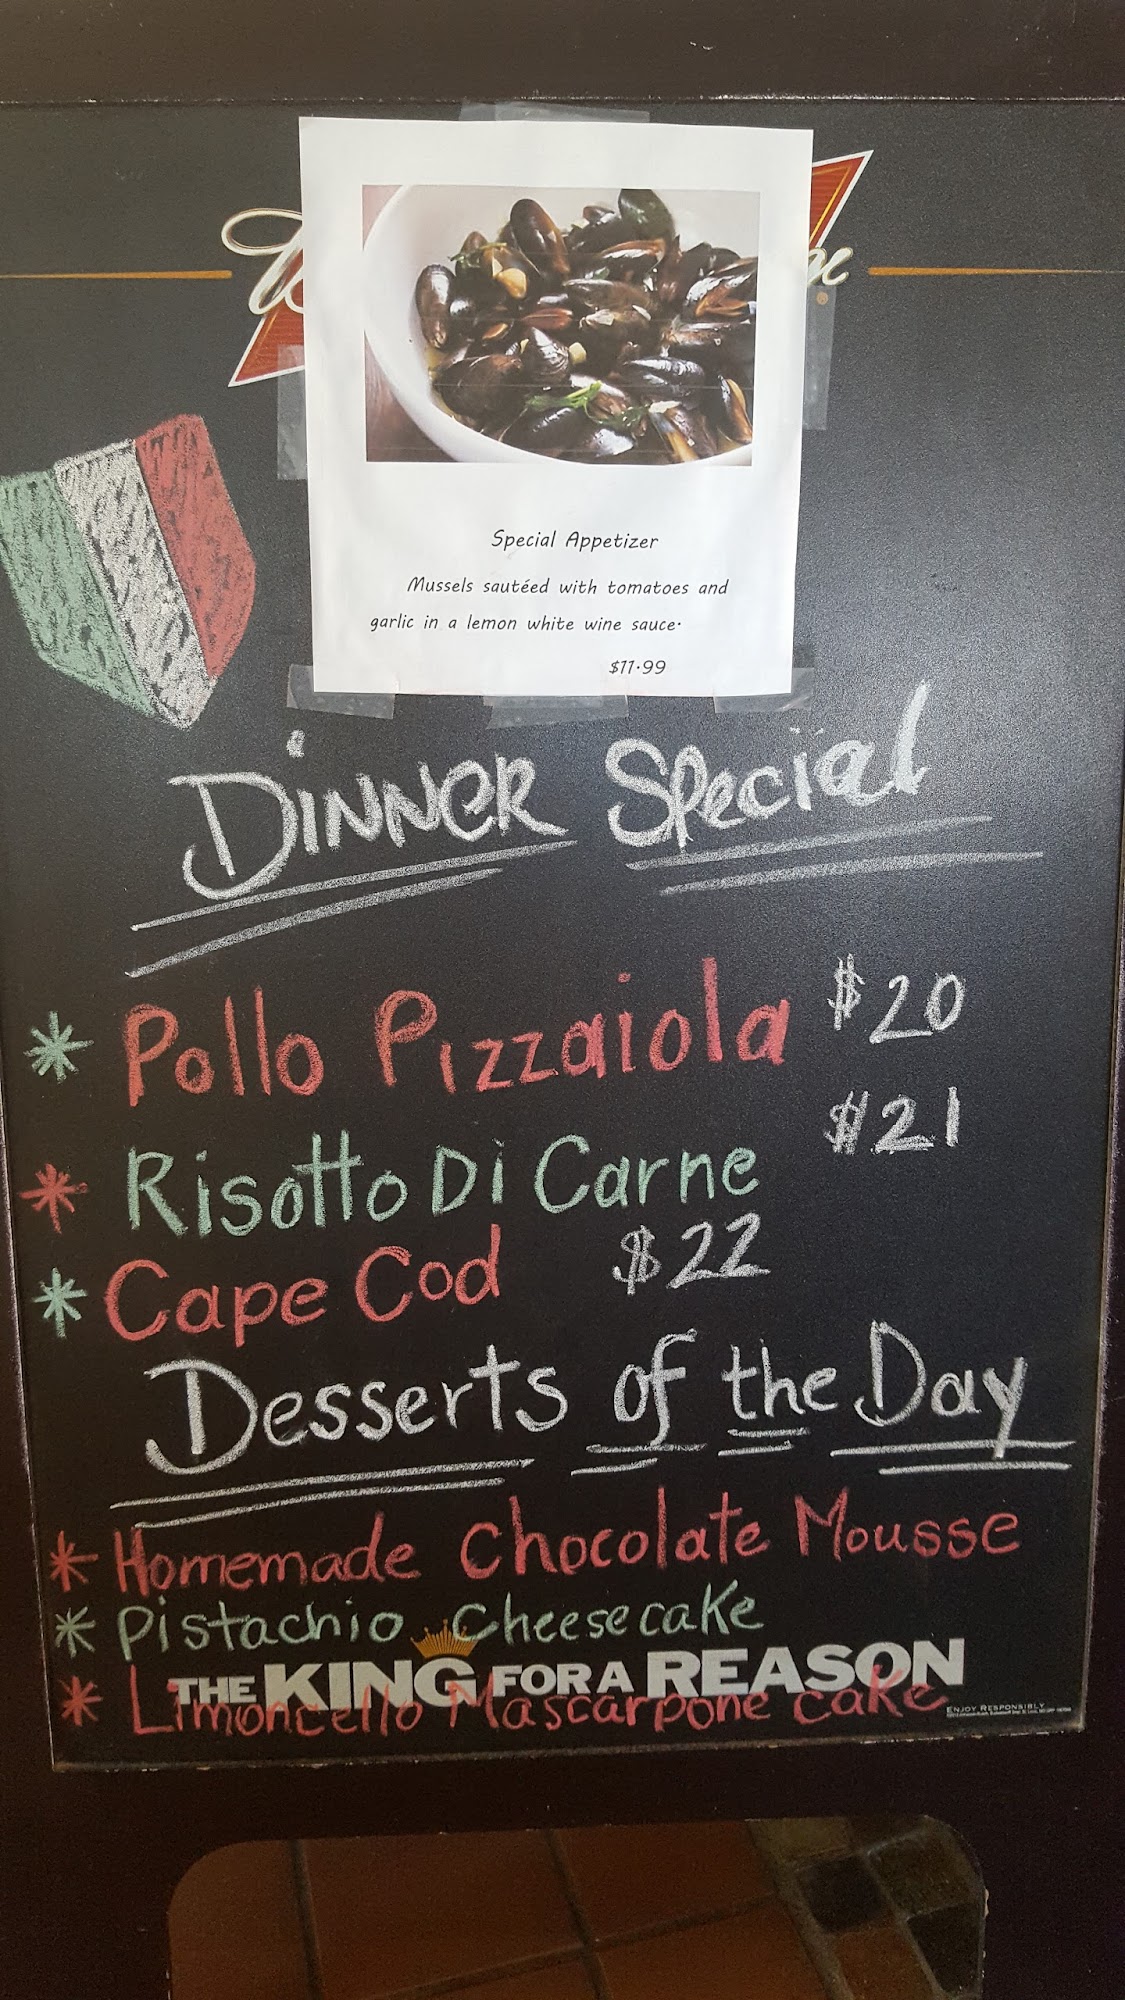 Special Appetizer
Mussels sautéed with tomatoes and
garlic in a lemon white wine sauce.
$11.99
Dinner Special
* Pollo Pizzaiola $20
$21
* Risotto Di Carne
* Cape Cod $22
Desserts of the Day
* Homemade Chocolate Mousse
* Pistachio Cheesecake
THE KING FOR A REASON
* Limoncello Mascarpone cake
ENJOY RESPONSIBLY